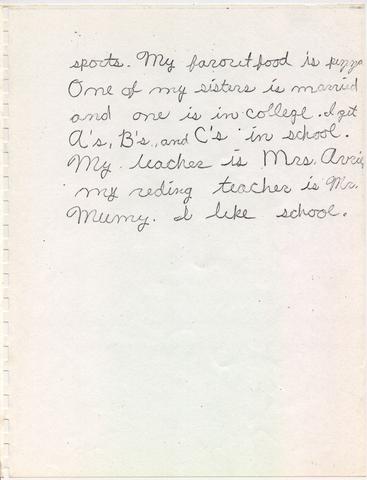 sports. My favoritfood is pizza
One of my sisters is married
and one is in college. I get
A's, B's, and C's in school.
My teacher is Mrs.
my reding teacher is Mr.
Mumy. I like school.